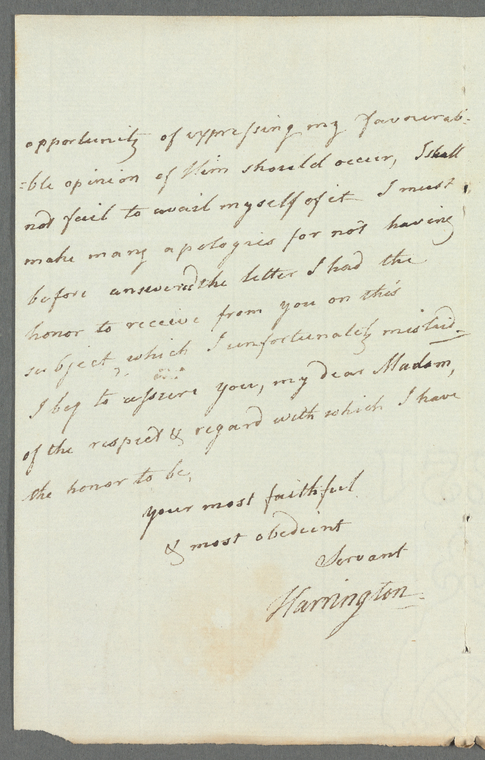 opportunity of expressing my favourab-
-ble opinion of Him should occur, I shall
not fail to avail myself of it I must
make many apologies for not having
before answered the letter I had the
honor to receive from you on this
subject which I unfortunately mislaid.
I beg to assure you, my dear Madam,
of the respect & regard with which I have
the honor to be,
your most faithful
& most obedient
Servant
Harrington